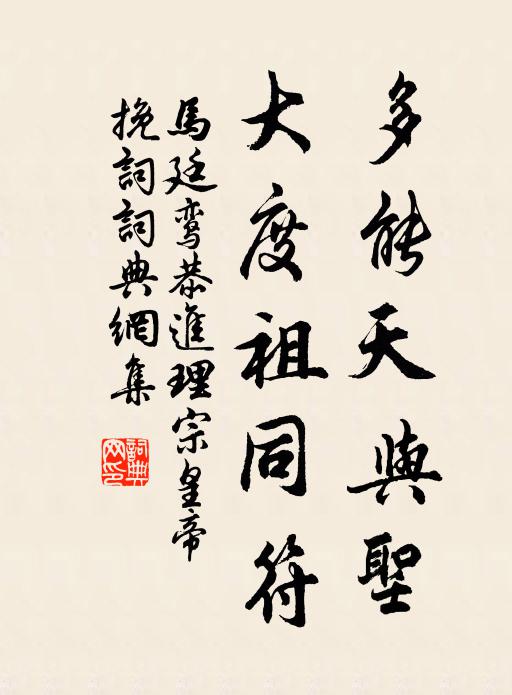 多能天與聖
大度祖同符
馬廷鸾恭進理宗皇帝
挽詞詞典網集
詞典网印